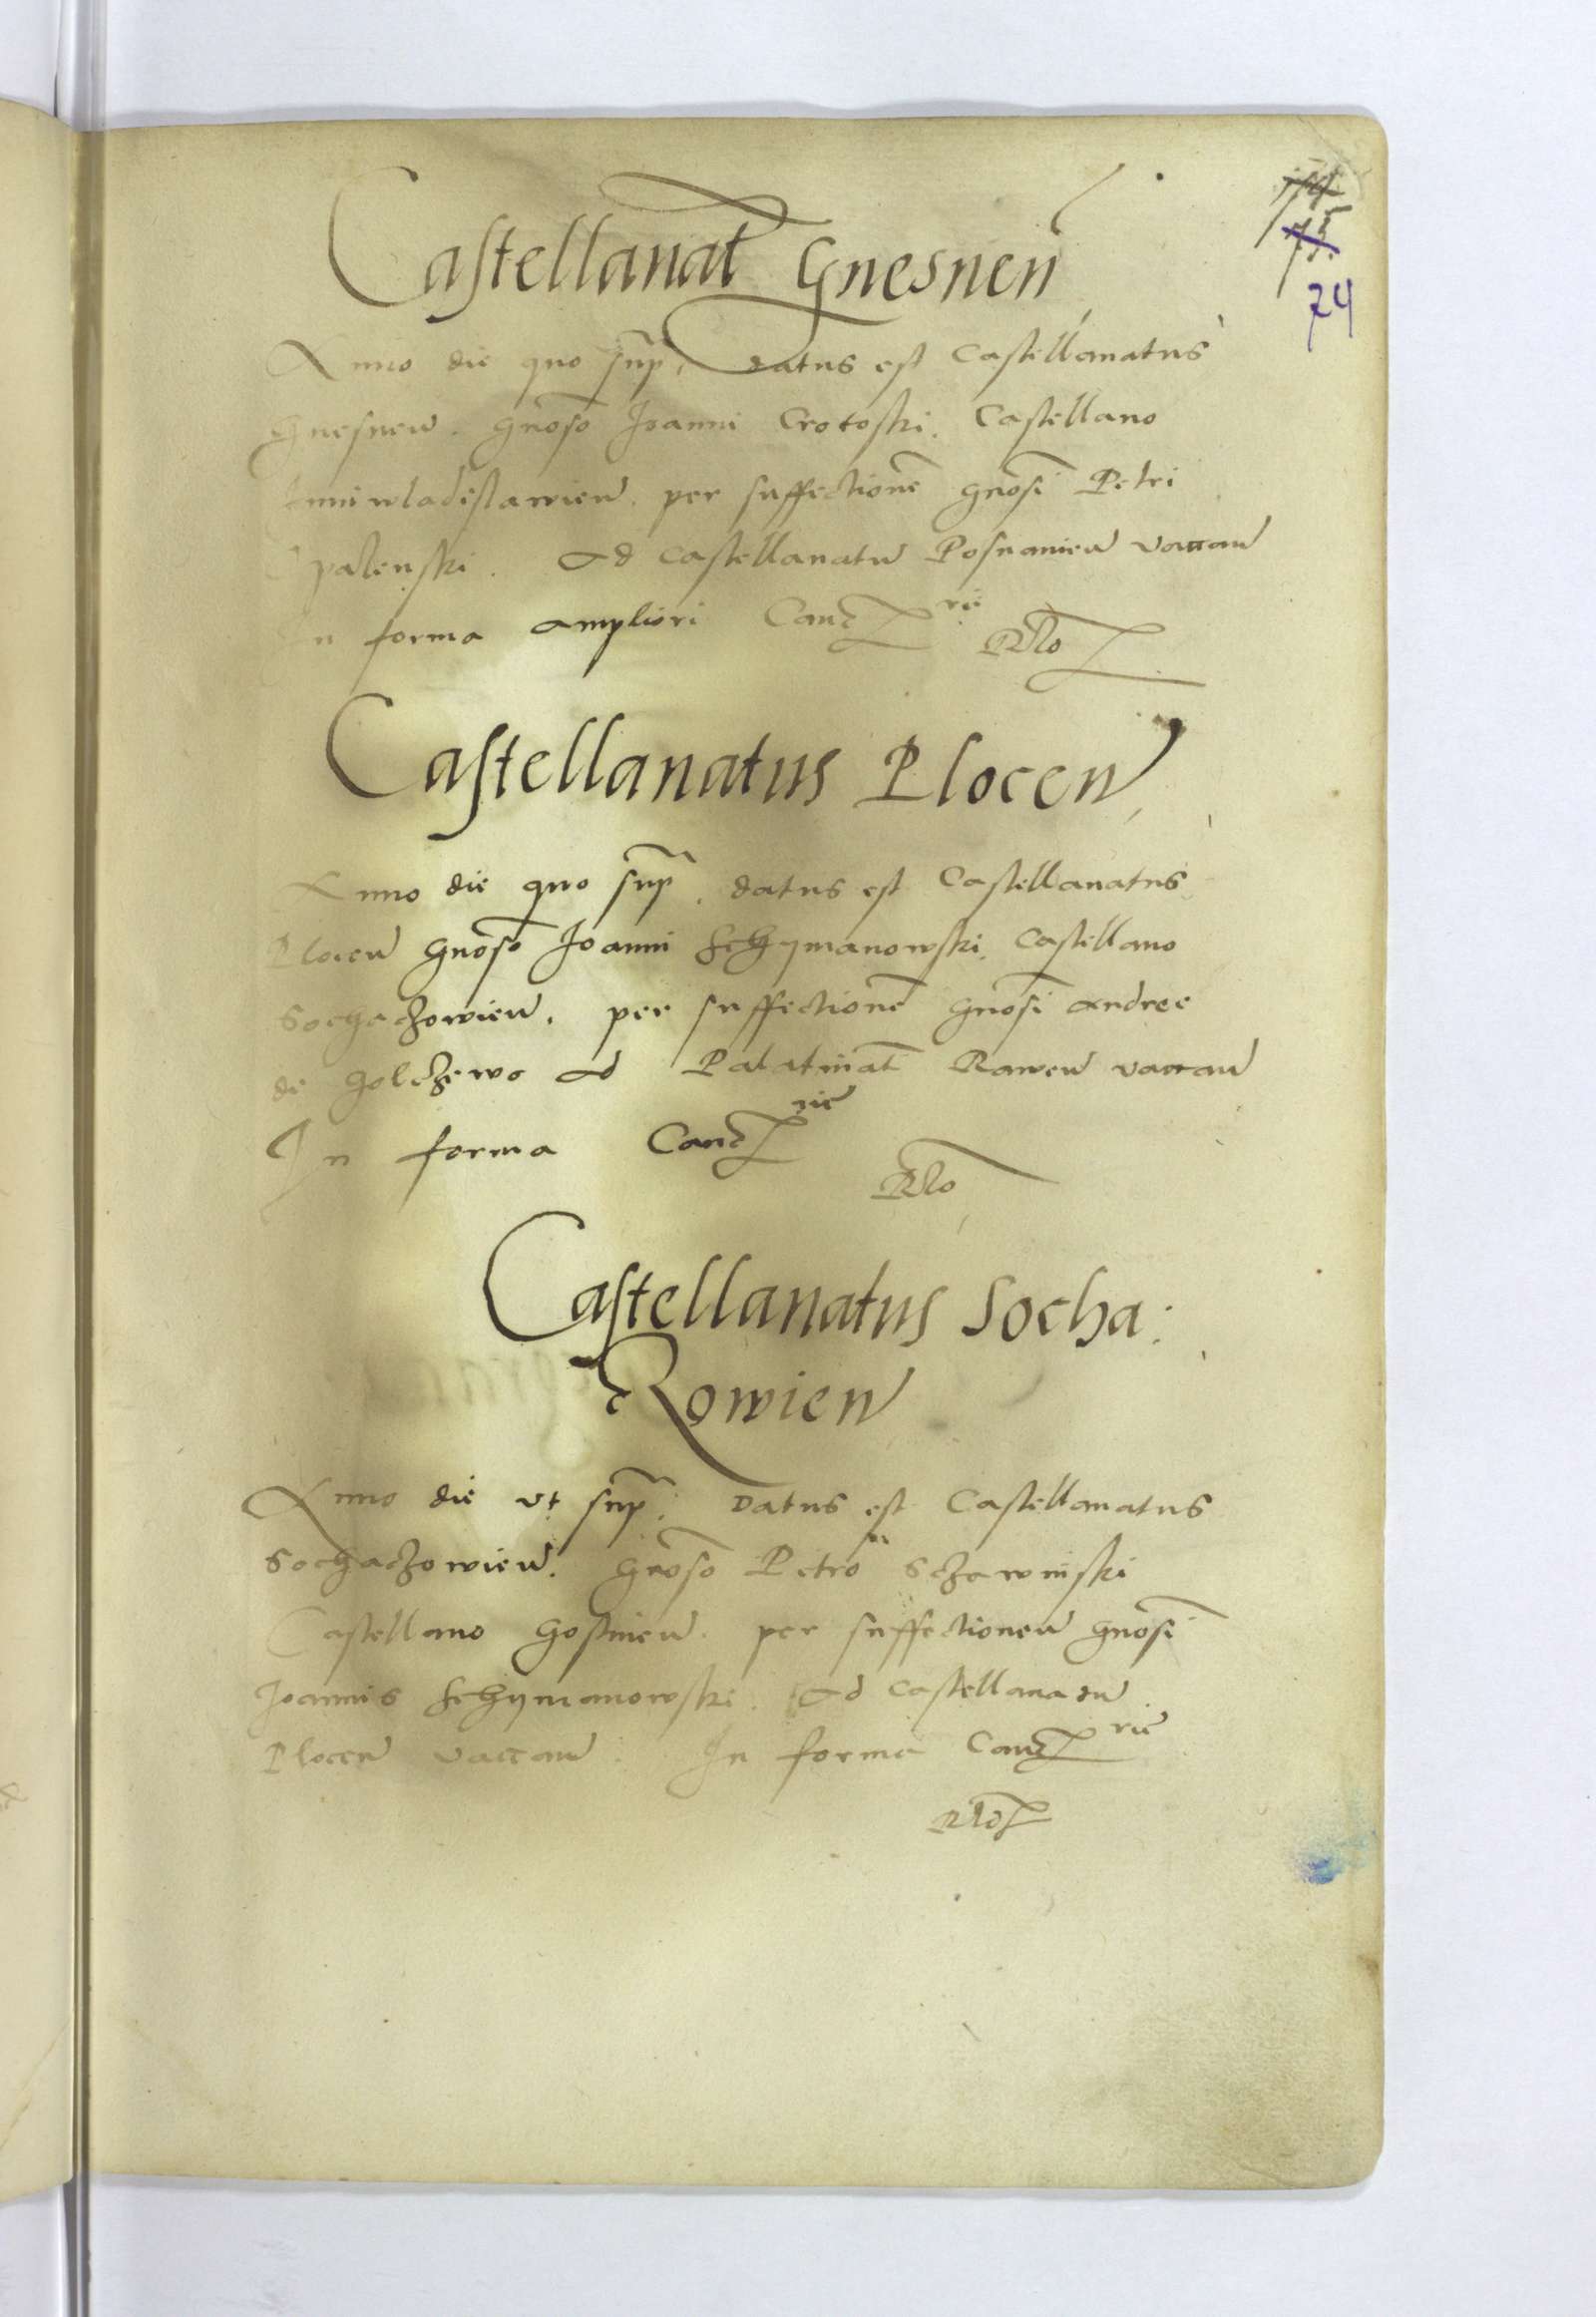 74
Castellanat Gnesnen
Anno die quo sup. datus est Castellanatus
Gnesnen. Gnoso Joanni Crotoski. Castellano
Juniwladislavien. per suffectione gnosi Petri
Opalenski. Ad Castellanatu Posnanien vaccan
In forma ampliori Canc rie
Castellanatus Plocen
Anno die quo sup. datus est Castellanatus
Plocen Gnoso Joanni Schymanowski. Castellano
Sochaczowien. per suffectione gnosi Andree
de Golczewo ad Palatinat Rawen vaccan
In forma Canc rie
Castellanatus Socha:
Kowien
Anno die vt sup. Datus est Castellanatus
Sochaczowien. Gnoso Petro Schawinski
Castellano Gostinen. per suffectionem gnosi
Joannis Schymanowski. Ad Castellanatu
Plocen vaccan. In forma Canc rie